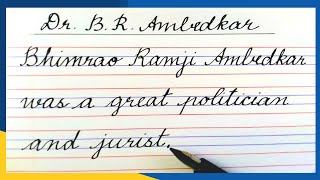 Dr. B. R. Ambedkar
Bhimrao Ramji Ambedkar
was a great politician
and jurist.